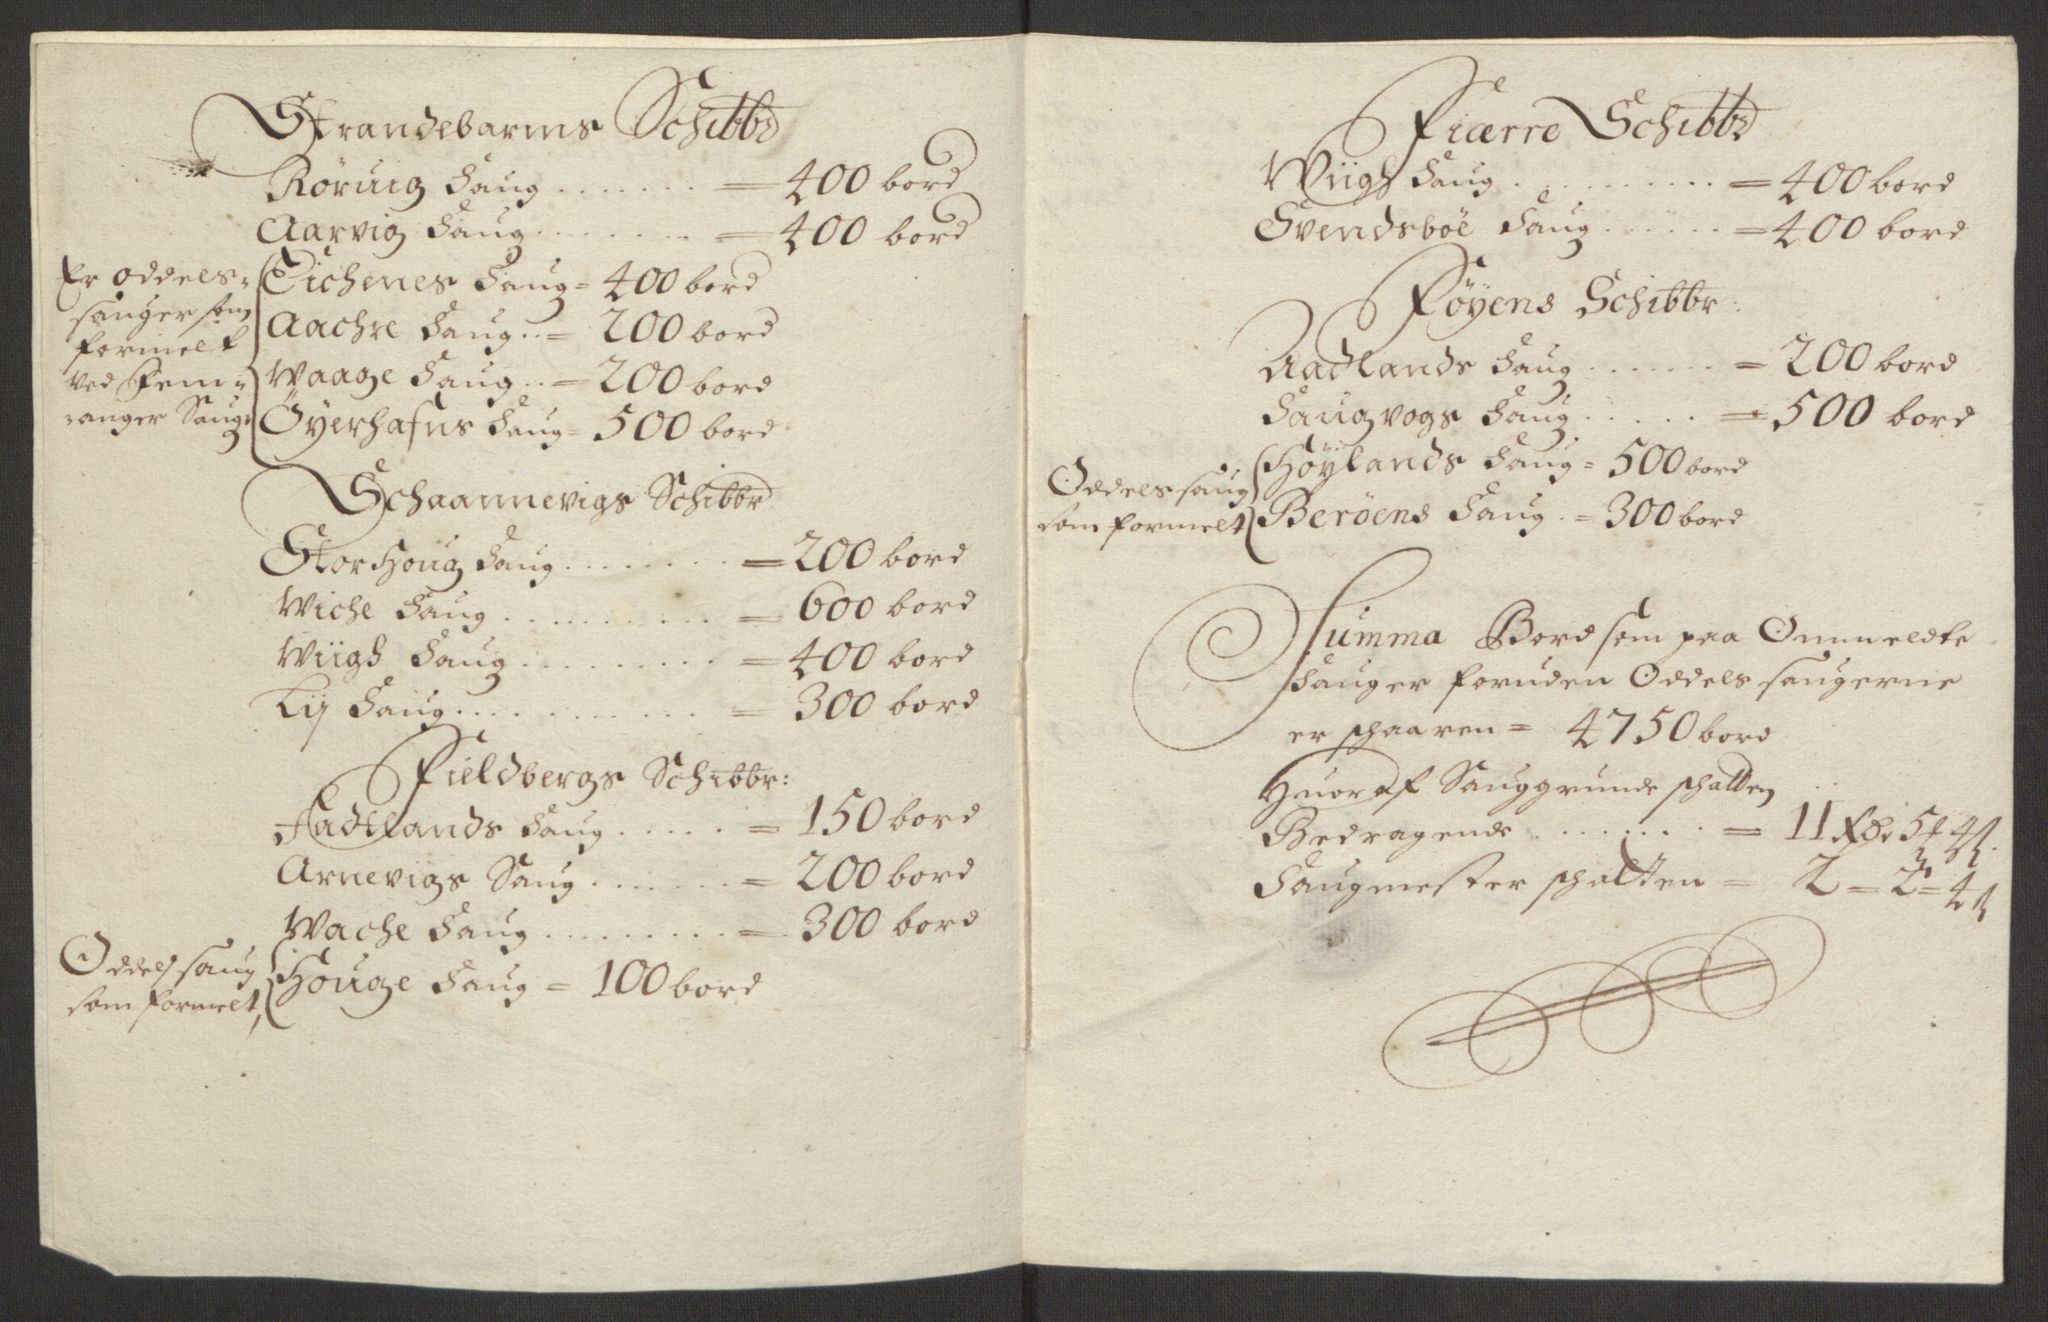 Strandebarms Schibbr
Röruig Saug . . . . . . . = 400 bord
Aarvig Saug . . . . . . . = 400 bord
Er oddels-
sauger som
formelt
ved Fem-
anger Saug
Eichenes Saug = 400 bord
Aachre Saug . . = 200 bord
Waage Saug . . = 200 bord
Öyerhafns Saug = 500 bord
Schaannevigs Schibbr
StorHoug Saug . . . . . . . = 200 bord
Wiche Saug . . . . . . . . . = 600 bord
Wiigh Saug . . . . . . . . . = 400 bord
Lij Saug . . . . . . . . . . = 300 bord
Fieldbergs Schibbr:
Aadtlands Saug . . . . . = 150 bord
Arnevigs Saug . . . . . . = 200 bord
Wache Saug . . . . . . . . = 300 bord
Oddels saug
som formelt,
Houge Saug = 100 bord
Fiærre Schibbr
Wiigh Saug . . . . . . . . . = 400 bord
Svendsböe Saug . . . . . . = 400 bord
Föyens Schibbr:
Aadlands Saug . . . . . . = 200 bord
Saugvogs Saug . . . . . = 500 bord
Oddels saug
som formelt
Höylands Saug = 500 bord
Beröens Saug . = 300 bord
Summa Bord som paa Ommeldte
Sauger foruden Oddels saugerne
er schaaren = 4750 bord
Huoraf Sauggrunds schatten
Bedragende . . . . . . . = 11 Rdr 5 4 s.
Saugmester schatten = 2 = 2 = 4 s